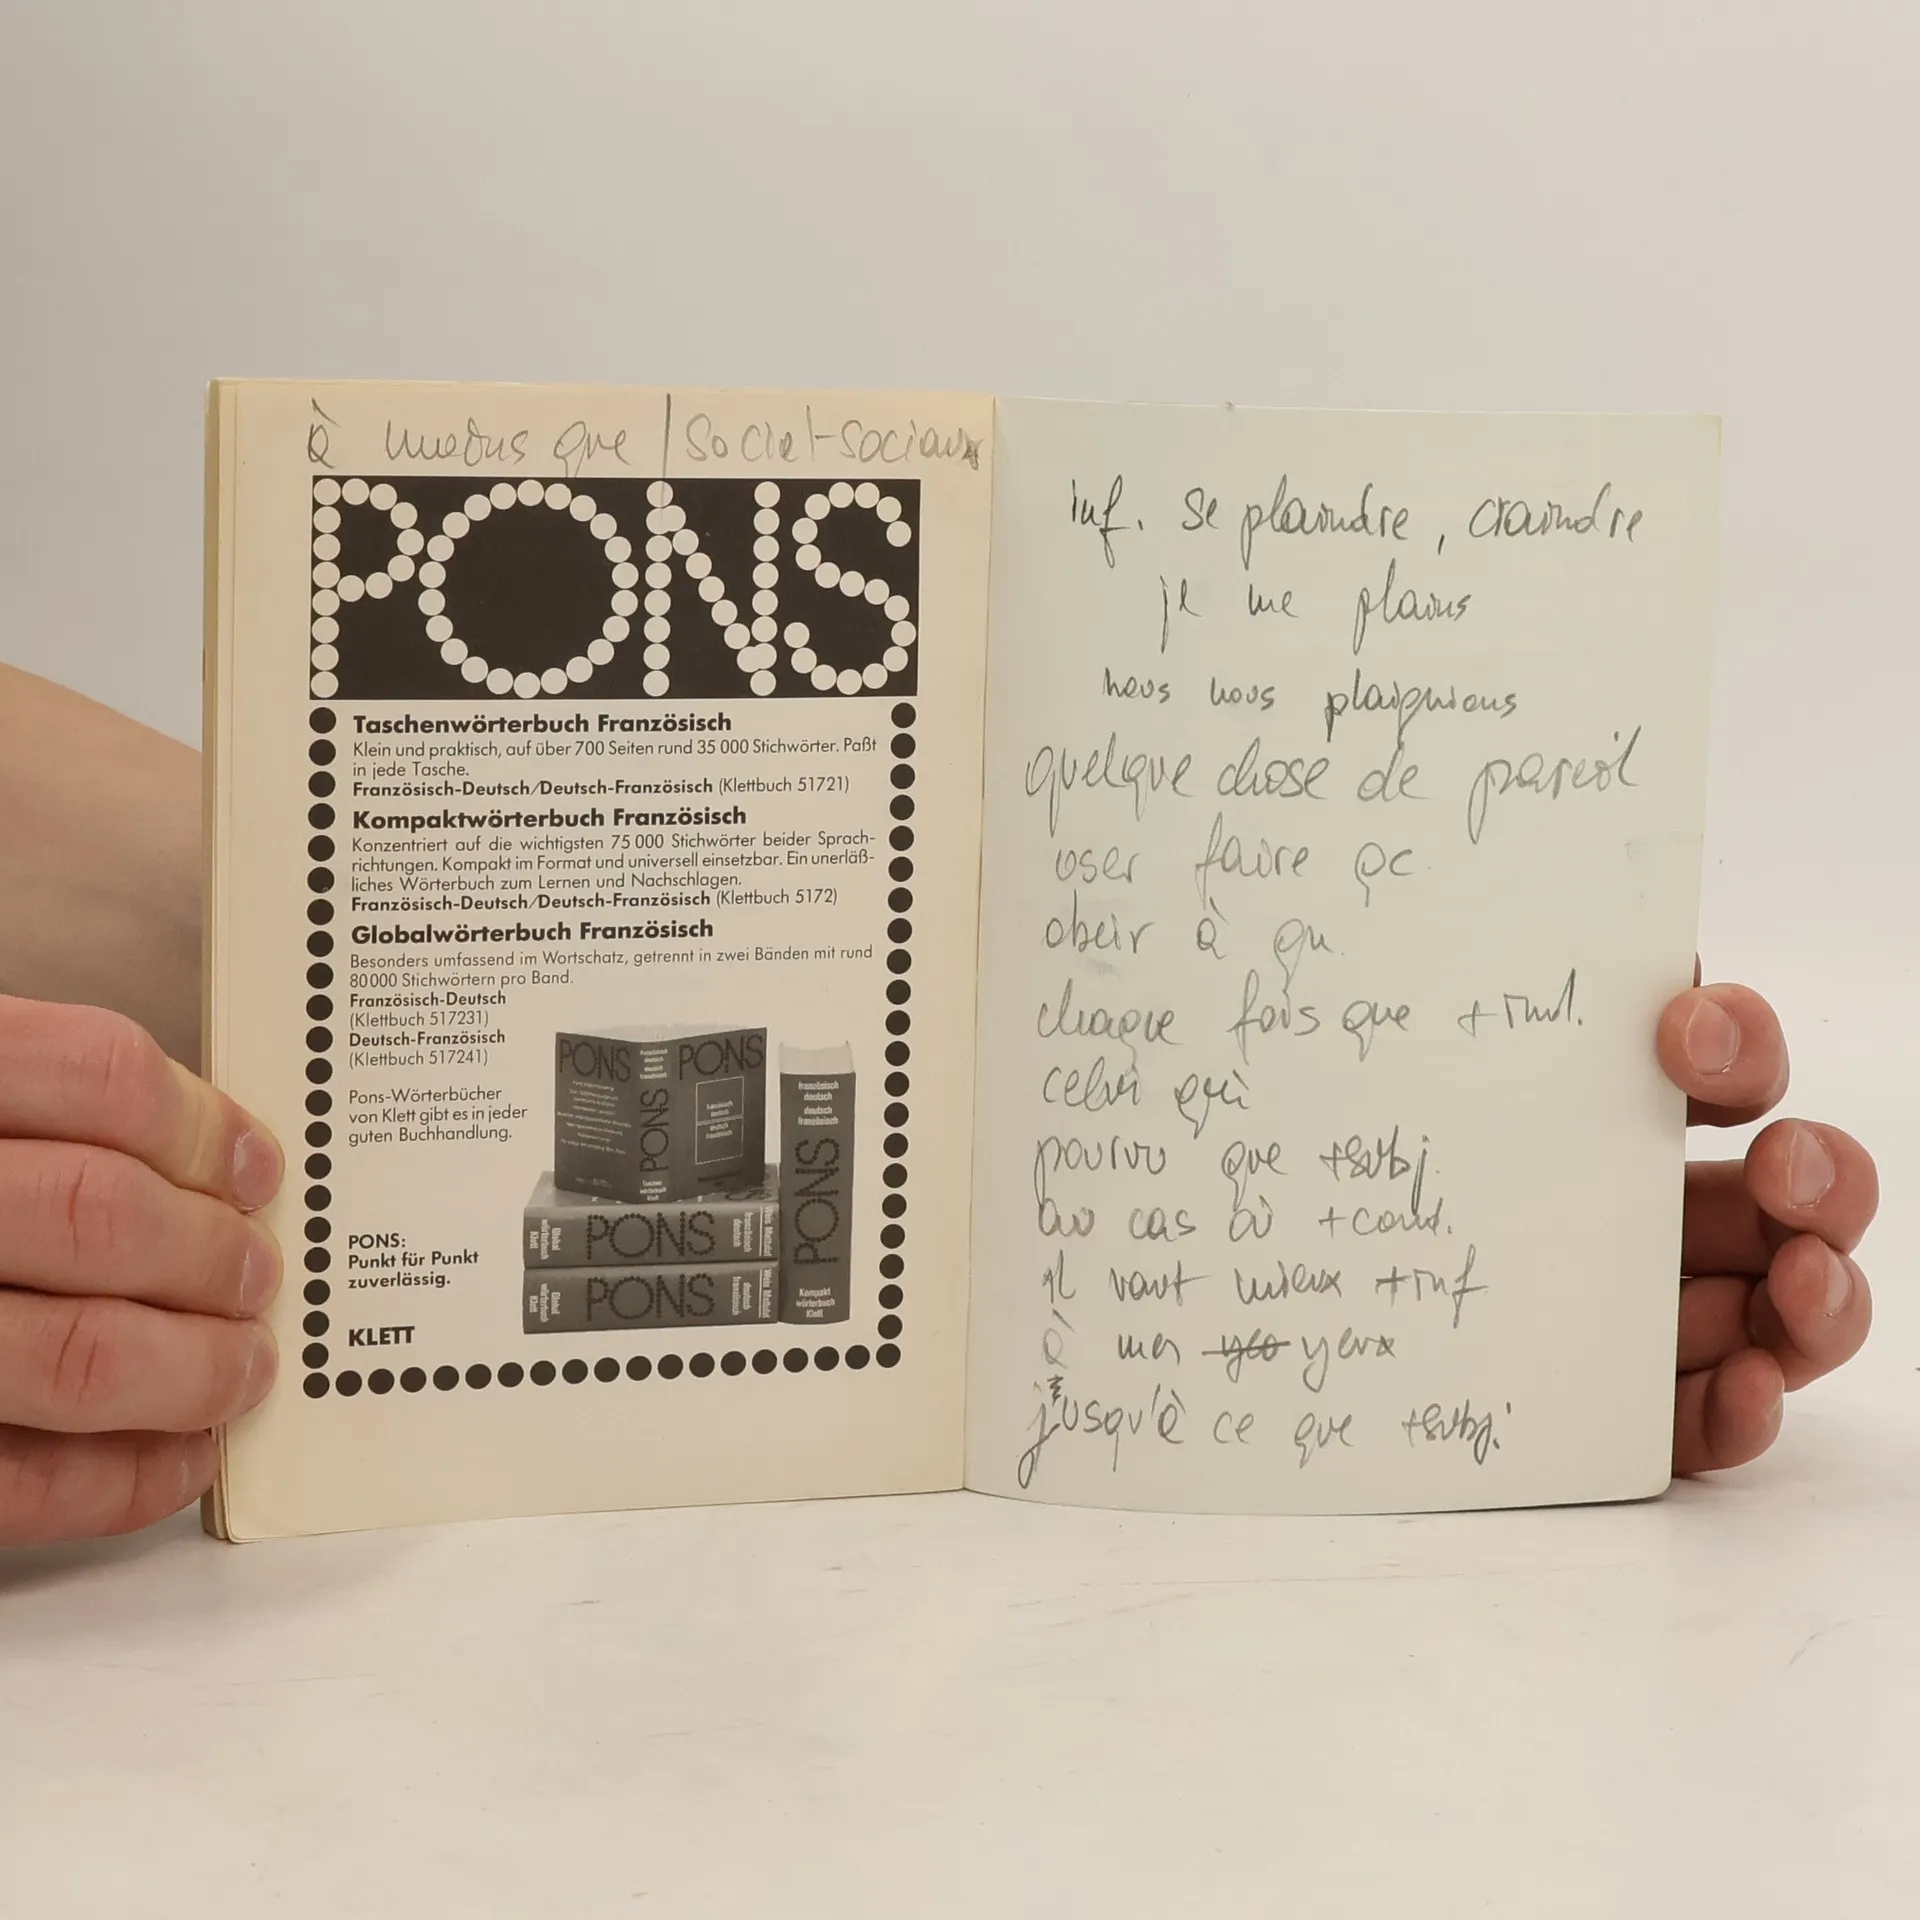 à moins que / social-sociaux
PONS
Taschenwörterbuch Französisch
Klein und praktisch, auf über 700 Seiten rund 35 000 Stichwörter. Paßt
in jede Tasche.
Französisch-Deutsch/Deutsch-Französisch (Klettbuch 51721)
Kompaktwörterbuch Französisch
Konzentriert auf die wichtigsten 75 000 Stichwörter beider Sprach-
richtungen. Kompakt im Format und universell einsetzbar. Ein unerläß-
liches Wörterbuch zum Lernen und Nachschlagen.
Französisch-Deutsch/Deutsch-Französisch (Klettbuch 5172)
Globalwörterbuch Französisch
Besonders umfassend im Wortschatz, getrennt in zwei Bänden mit rund
80 000 Stichwörtern pro Band.
Französisch-Deutsch
(Klettbuch 517231)
Deutsch-Französisch
(Klettbuch 517241)
Pons-Wörterbücher
von Klett gibt es in jeder
guten Buchhandlung.
PONS:
Punkt für Punkt
zuverlässig.
KLETT
PONS
PONS
PONS
französisch
deutsch
deutsch
französisch
PONS
Kompakt
wörterbuch
Klett
Global
wörterbuch
Klett
PONS
französisch
deutsch
Weis Mattutat
Global
wörterbuch
Klett
PONS
deutsch
französisch
Weis Mattutat
inf. se plaindre, craindre
je me plains
nous nous plaignions
quelque chose de pareil
oser faire qc.
obeir à qn.
chaque fois que + ind.
celui qui
pourvu que +subj.
au cas où + cond.
il vaut mieux +inf
à mes yeux
jusqu'à ce que +subj.